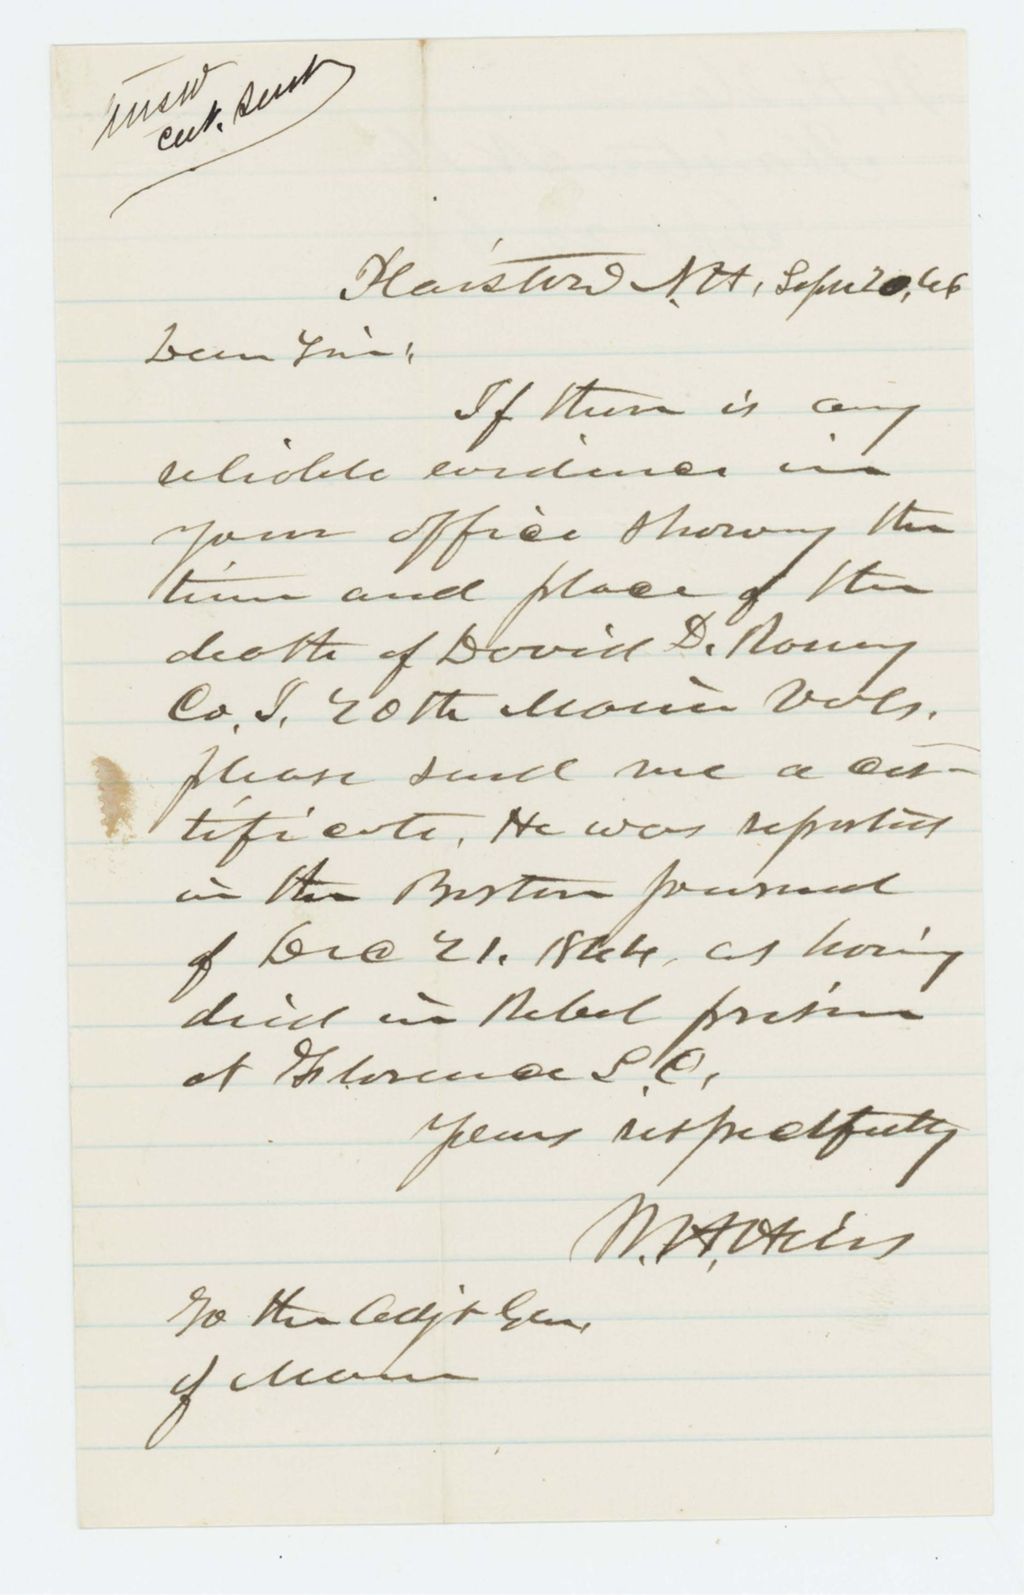 cert. sent
Plaistow N.H., Sept 20, 66
Dear Sir:
If there is any
reliable evidence in
your office showing the
time and place of the
death of David D. Ramey
Co. I. 20th Maine Vols.
please send me a cer-
tificate. He was reported
in the Boston Journal
of Dec 21. 1864, as having
died in Rebel prison
at Florence S.C.
Yours respectfully
To the Adjt Gen.
of Maine